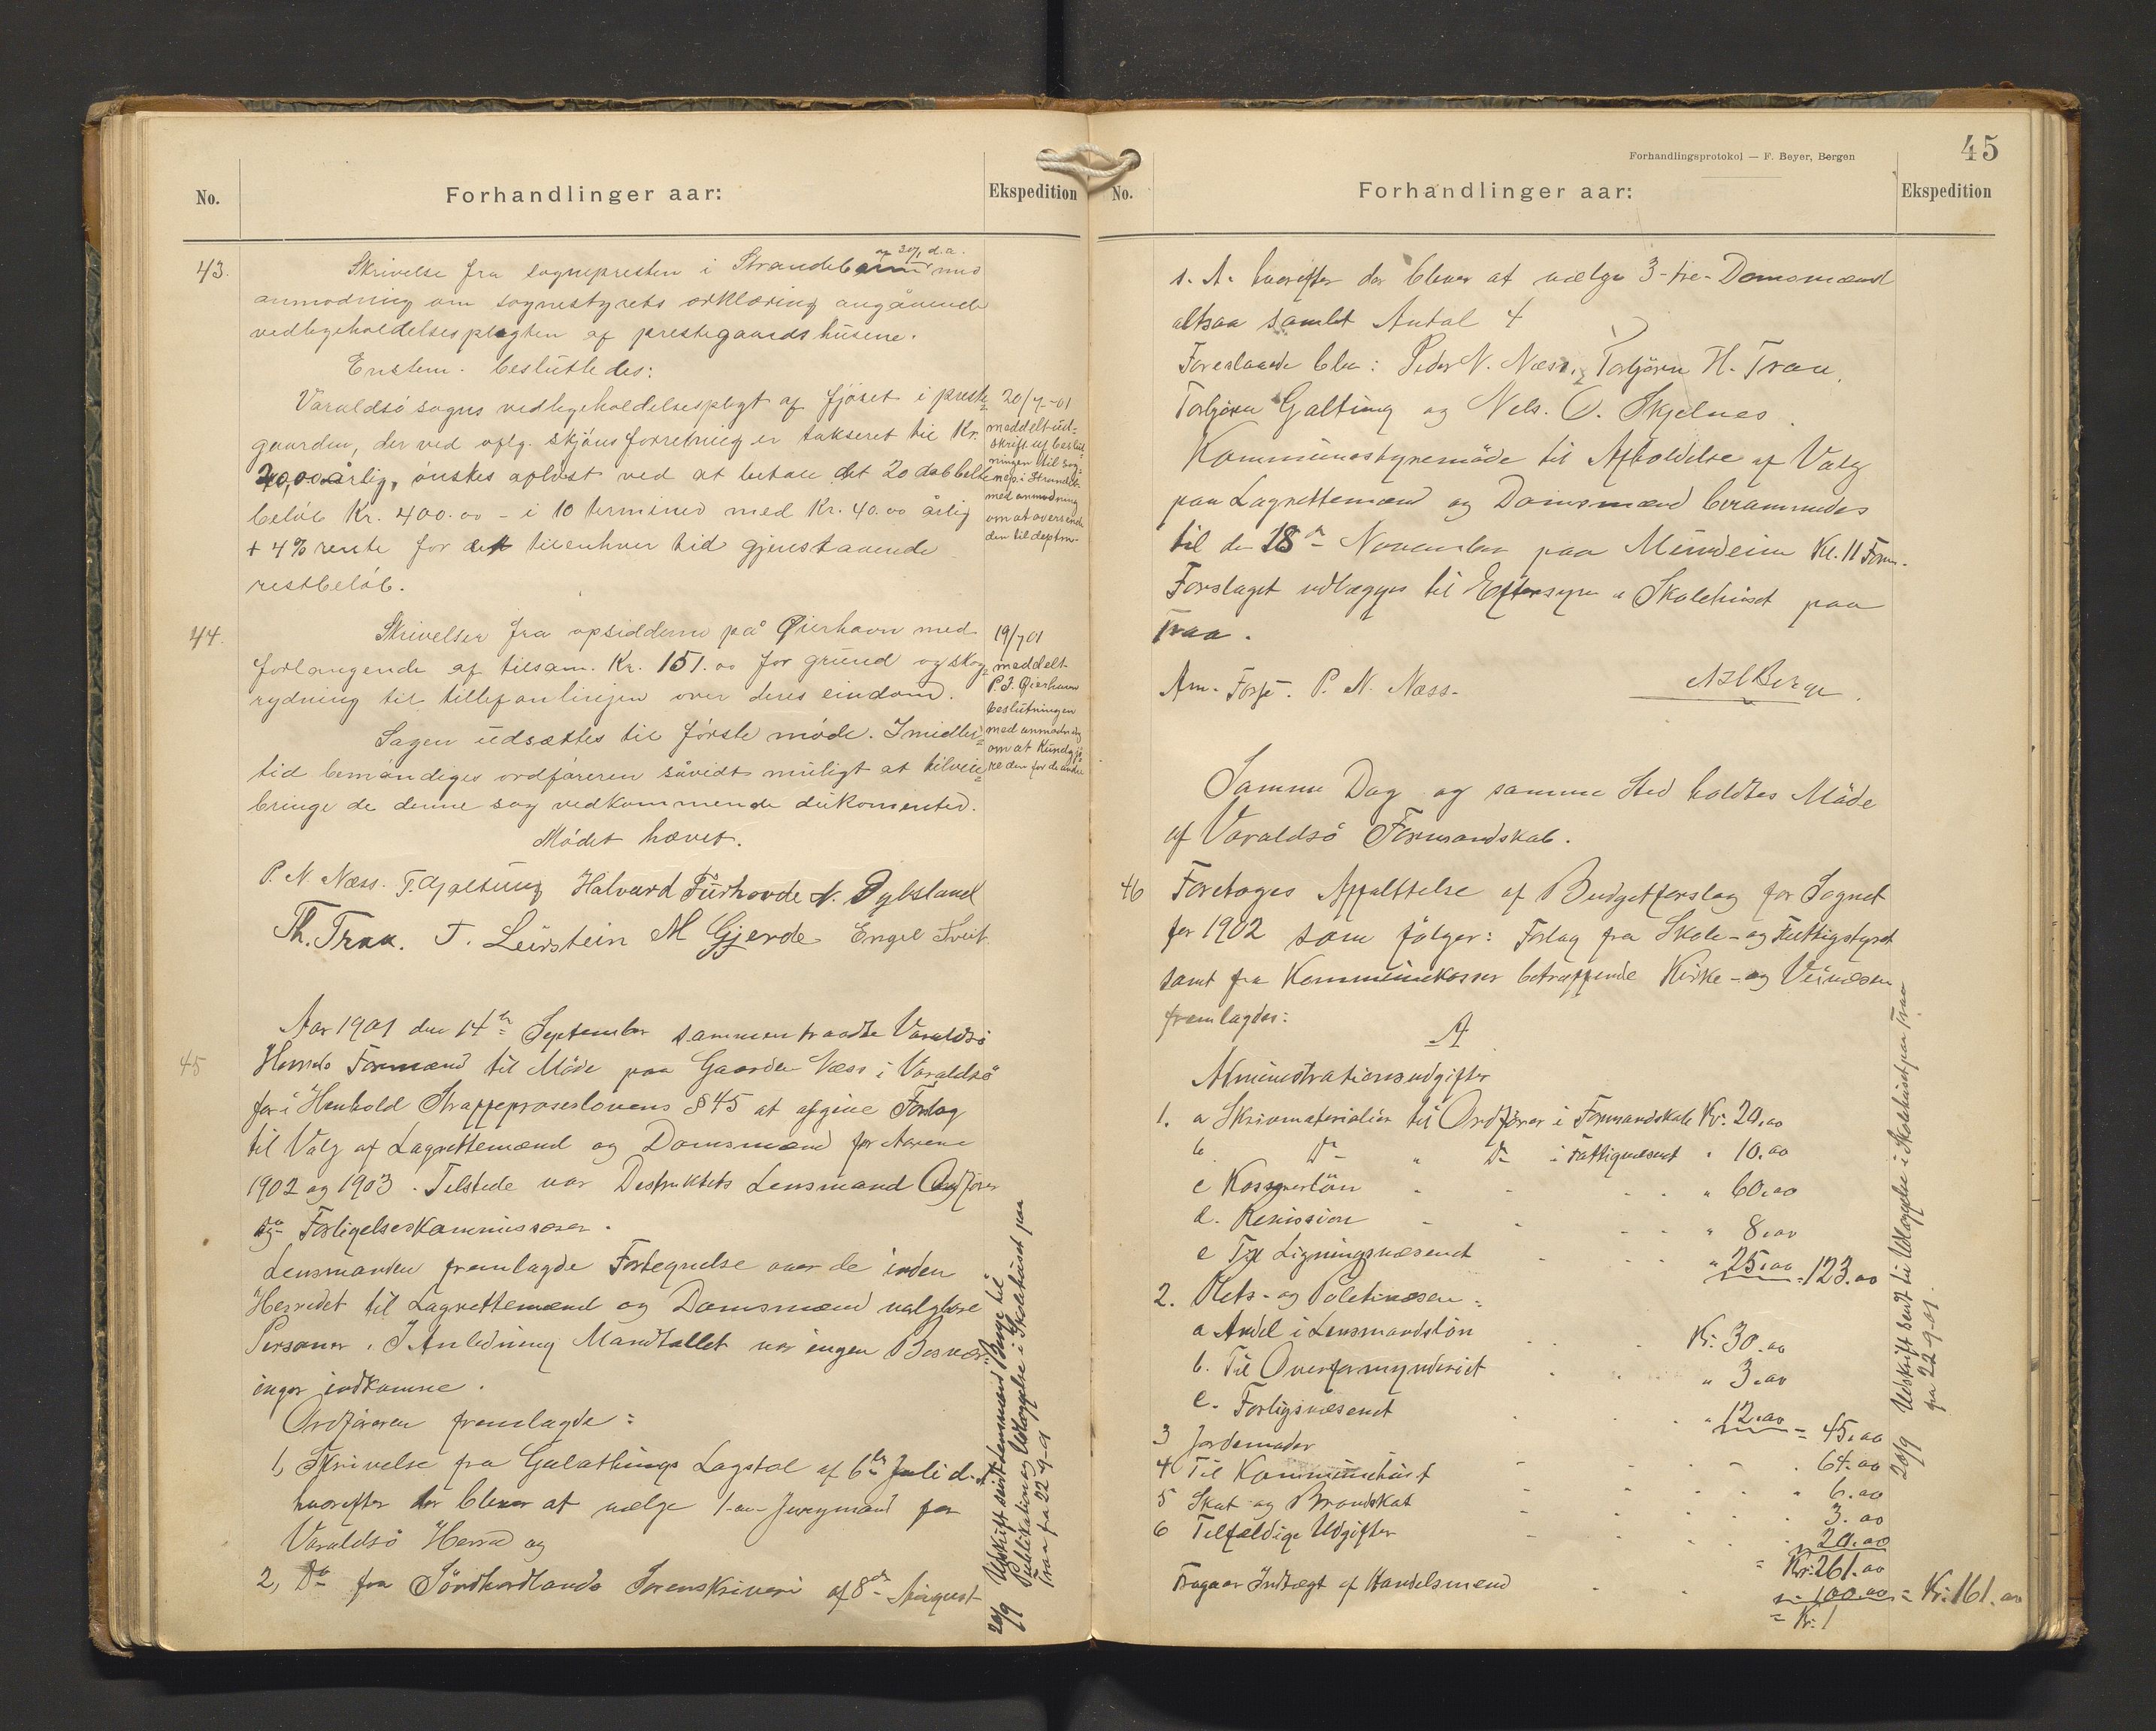 No.
Forhandlinger aar:
Ekspedition
43.
af 30/1 d.a.
Skrivelse fra sognepresten i Strandebarm med
anmodning om sognestyrets erklæring angående
vedligeholdelsesplegten af prestegaards husene.
Enstem. besluttedes:
Varaldsö sogns vedligeholdelsesplegt af fjöset i preste=
gaarden, der ved oplg. skjönsforretning er takseret til Kr.
20,00 årlig, önskes aplöst ved at betale det 20 dobbelte
belöb Kr. 400.00 - i 10 terminer med Kr. 40.00 årlig
+ 4% rente for det tilenhver tid gjenstaaende
restbelöb.
20/7-01
meddelt ud=
skrift af beslut=
ningen til sog=
nep. i Strandeb.
med anmodning
om at oversende
den til deptm.
44.
Skrivelse fra opsidderne på Øierhavn med
forlangende af tilsam. Kr. 151.00 for grund og skog=
rydning til tillefonlinjen over deres eindom.
Sagen udsættes til förste möde. Imidler=
tid bemöndiges ordföreren såvidt muligt at tilveie=
bringe de denne sag vedkommende dukomenter.
Mödet hævet.
19/7 01
meddelt
P. J. Øierhavn
beslutningen
med anmodning
om at kundgjö
re den for de andre
P. N. Næss. T. Gjaltung Halvard Furhovde N. Dybsland
Th. Traa. T. Leirstein M Gjerde Engel Tveit
45
Aar 1901 den 14de September sammentraadte Varaldsö
Herreds Formænd til Möde paa Gaarden Næss i Varaldsö
for i Henhold Straffeproseslovens § 45 at afgive Forslag
til Valg af Lagrettemænd og Domsmænd for Aarene
1902 og 1903. Tilstede var Destriktets Lensmand Ordförer
og Forligelseskommissærer.
Lensmanden fremlagde Fortegnelse over de inden
Herredet til Lagrettemænd og Domsmænd valgbare
Personer. I Anledning Mandtallet var ingen Besvær=
inger indkomne.
Ordföreren fremlagde:
1, Skrivelse fra Gulathings Lagstol af 6te Juli d.A
hvorefter der bliver at vælge 1-en- Jurymand for
Varaldsö Herred og
2, Do fra Söndhordlands Sorenskriveri af 8de August
20/9 Udskrift sent Lensmand Berge til
Publikation og Udlæggelse i Skolehuset paa
Traa fra 22-9-01
Forhandlingsprotokol — F. Beyer, Bergen
45
No.
Forhandlinger aar:
Ekspedition
s. A. hvorefter der bliver at vælge 3-tre- Domsmænd
altsaa samlet Antal 4
Foreslaaede blev: Peder N. Næss, Torbjörn H. Traa,
Torbjörn Galtung og Nels. O. Skjelnes.
Kommunestyremöde til Afholdelse af Valg
paa Lagrettemænd og Domsmænd berammedes
til den 18de November paa Mundeim Kl. 11 Form.
Forslaget udlægges til Eftersyn i Skolehuset paa
Traa.
Am. Forf. P. N. Næss.
Samme Dag og samme Sted holdtes Möde
af Varaldsö Formandskab.
46
Foretoges Affattelse af Budgetforslag for Sognet
for 1902 som fölger: Forlag fra Skole- og Fattigstyret
samt fra Kommunekasser betræffende Kirke- og Veivæsen
fremlagdes:
A
Administrationsudgifter
1. a Skrivmaterialier til Ordförer i Formandskab Kr. 20.00
b. Do " Do i Fattigvæsent " 10.00
c Kassererlön " 60.00
d. Revission " 8.00
e Til Ligningsvæsenet " 25.00 = 123.00
2. Rets- og Poletivæsen:
a Andel i Lensmandslön Kr. 30.00
b. Til Overformynderiet " 3.00
c. Forligsvæsenet " 12.00 = 45.00
3 Jordemoder 64.00
4 Til Kommunehuset " 6.00
5 Skat og Brandskat 3.00
6 Tilfældige Udgifter " 20.00
= Kr. 261.00
Fragaar Indtægt af Handelsmænd 100.00 = Kr. 161.00
= Kr. 1
20/9 Udskrift sent til Udlæggelse i Skolehuset paa Traa
fra 22-9-01.